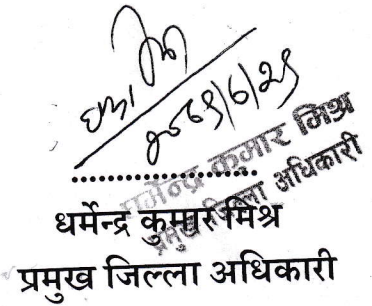 २०८१/६/२९
धर्मेन्द्र कुमार मिश्र
प्रमुख जिल्ला अधिकारी
..............................
धर्मेन्द्र कुमार मिश्र
प्रमुख जिल्ला अधिकारी